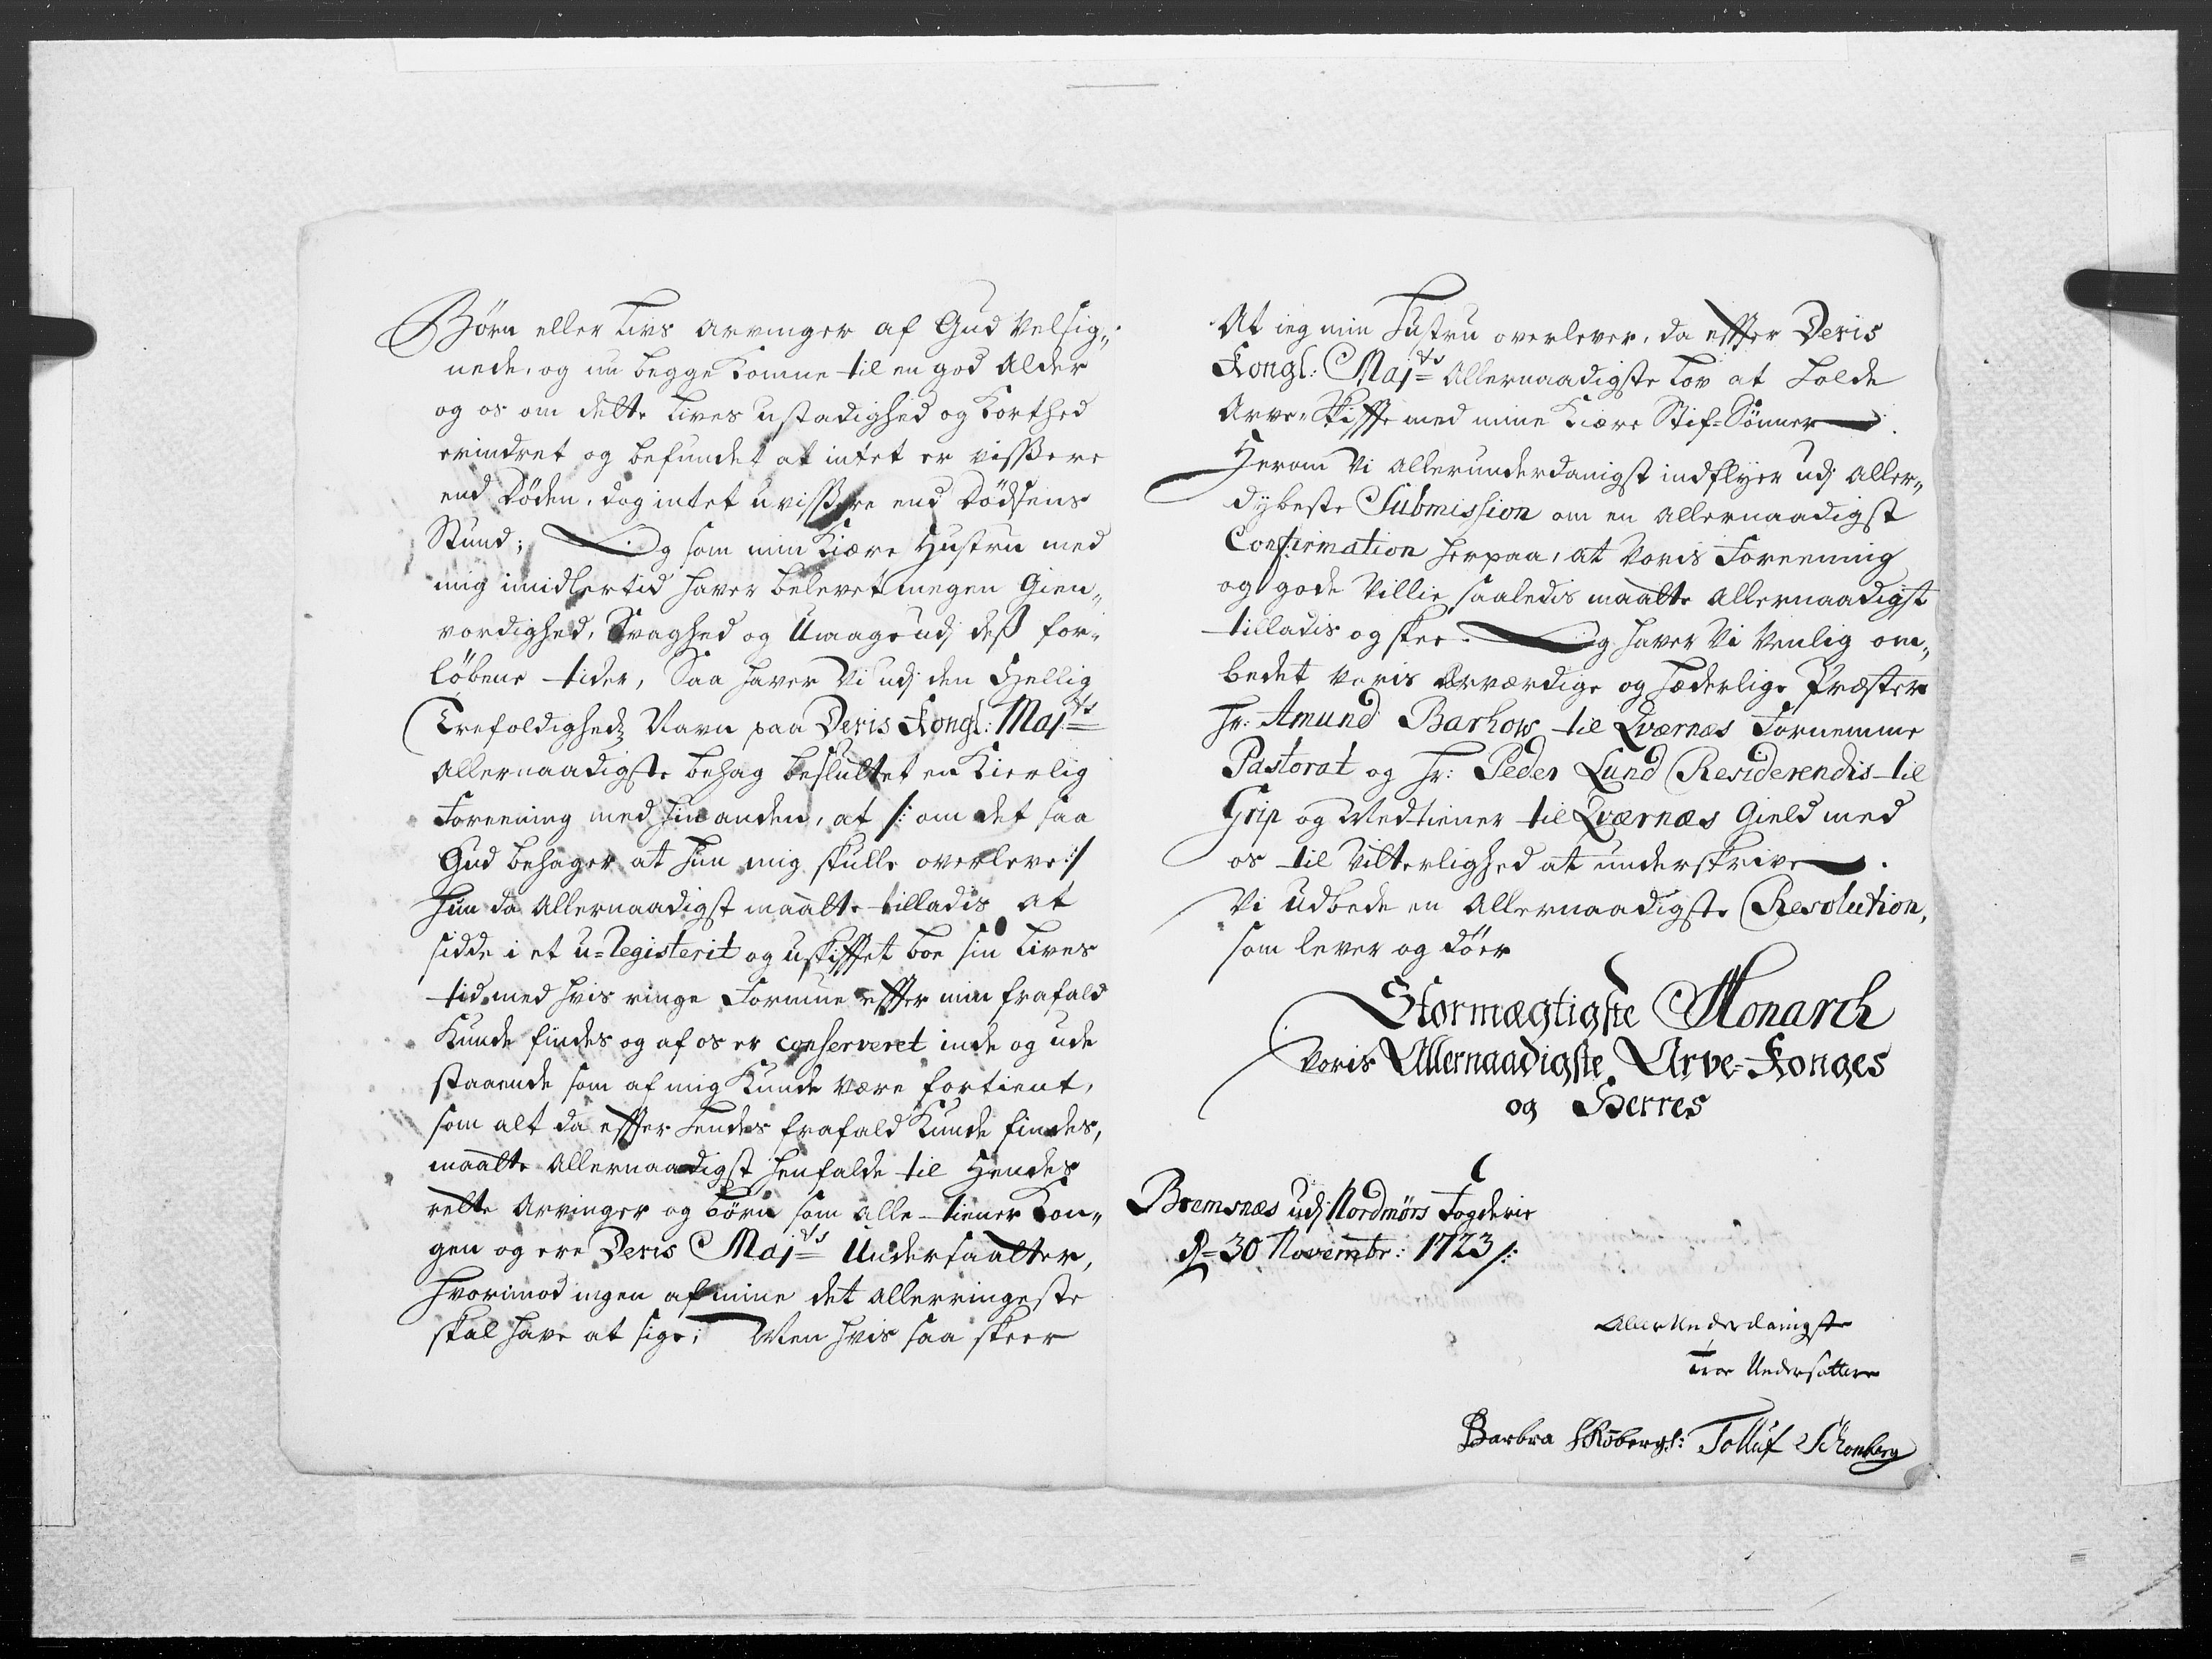 Börn eller Livs arvinger af Gud Velsig„
nede, og nu begge komne til en god Alder
og os om dette Lives ustadighed og korthed
erindret og befundet at intet er vissere
end Döden, dog intet uvissere end Dödsens
Stund; Og som min kiære Hustru med
mig imidlertid haver belevet megen Gien„
vordighed, Svaghed og Umage udj dess for„
löbene tider, Saa haver Vi udj den Hellig
Trefoldigheds Navn paa Deris Kongl: Maj:ts
allernaadigste behag besluttet en kierlig
Foreening med hin anden, at /: om det saa
Gud behager at hun mig skulle overleve :/
hun da Allernaadigst maatte tilladis at
sidde i et u=registerit og uskifftet boe sin Lives
tid med hvis ringe Formue effter min frafald
kunde findes og af os er conserveret inde og ude
staaende som af mig kunde være fortient,
som alt da effter hendes frafald kunde findes,
maatte Allernaadigst henfalde til Hendes
rette Arvinger og börn som alle tiener Kon„
gen og ere Deris Maj:ts Undersaatter,
hvorimod ingen af mine det allerringeste
skal have at sige; Men hvis saa skeer
At ieg min Hustru overlever, da effter Deris
Kongl: Maj:ts Allernaadigste Lov at holde
Arve=Skiffte med mine kiære Stif=Sönner.
Herom Vi allerunderdanigst indflyer udj aller„
dybeste Submission om en allernaadigst
Confirmation herpaa, at Voris Foreening
og gode Villie saaledis maatte allernaadigst
tilladis og skee. Og haver Vi Venlig om„
bedet Voris Ærværdige og hæderlige Præster
Hr: Amund Barhow til Qværnæs Fornemme
Pastorat og Hr: Peder Lund Residerendis til
Grip og Medtiener til Qværnæs Gield med
os til Vitterlighed at underskrive.
Vi udbede en Allernaadigste Resolution,
som lever og döer
Stormægtigste Monarch
Voris Allernaadigste Arve=Konges
og Herres
Bremsnæs udj Nordmörs Fogderie
d= 30 Novembr: 1723 /:
Allerunderdanigste
Troe Undersatter
Barbra Tolluf Schonberg